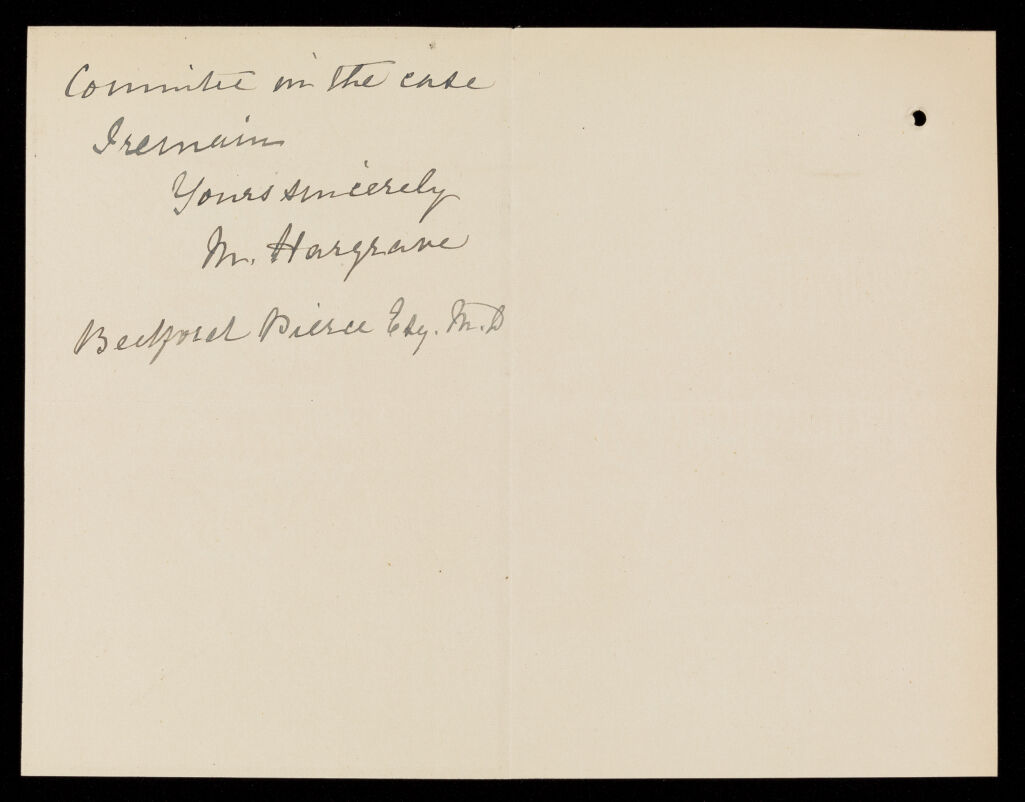 Committee in the case
I remain
Yours sincerely
M. Hargrave
Bedford Pierce Esq. M.D